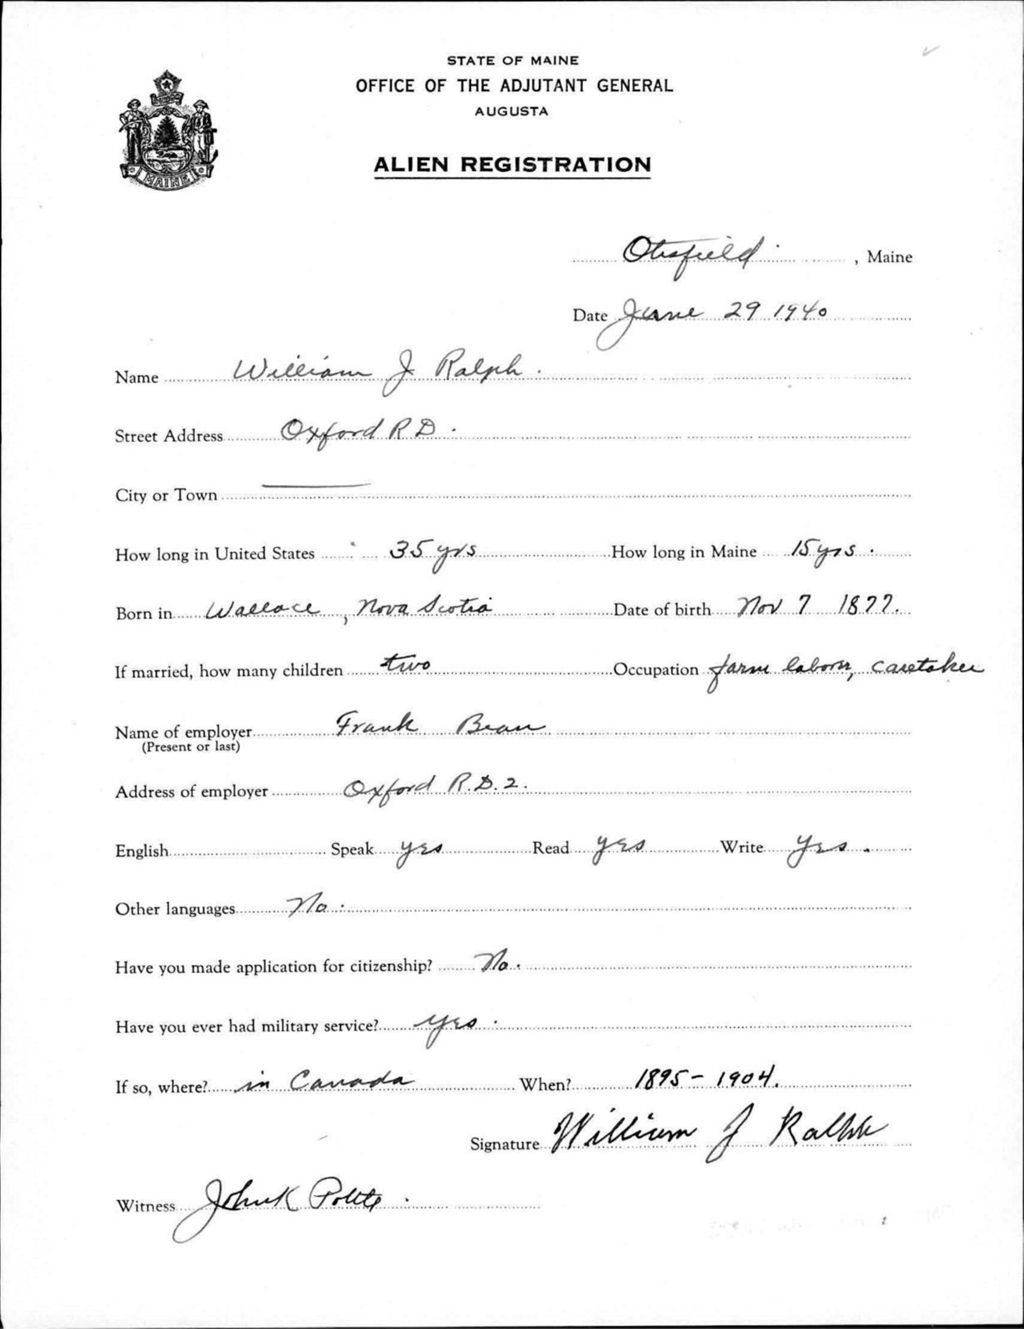 STATE OF MAINE
OFFICE OF THE ADJUTANT GENERAL
AUGUSTA
MAINE
ALIEN REGISTRATION
Otisfield, Maine
Date June 29 1940
Name William J. Ralph.
Street Address Oxford R D.
City or Town
How long in United States 35 yrs How long in Maine 15 yrs.
Born in Wallace, Nova Scotia Date of birth Nov 7 1877.
If married, how many children two Occupation farm labor, caretaker
Name of employer Frank Bean
(Present or last)
Address of employer Oxford R.D.2.
English Speak yes Read yes Write Yes.
Other languages No.
Have you made application for citizenship? No.
Have you ever had military service? yes.
If so, where? in Canada When? 1895-1904.
Signature William J Ralph
Witness John K